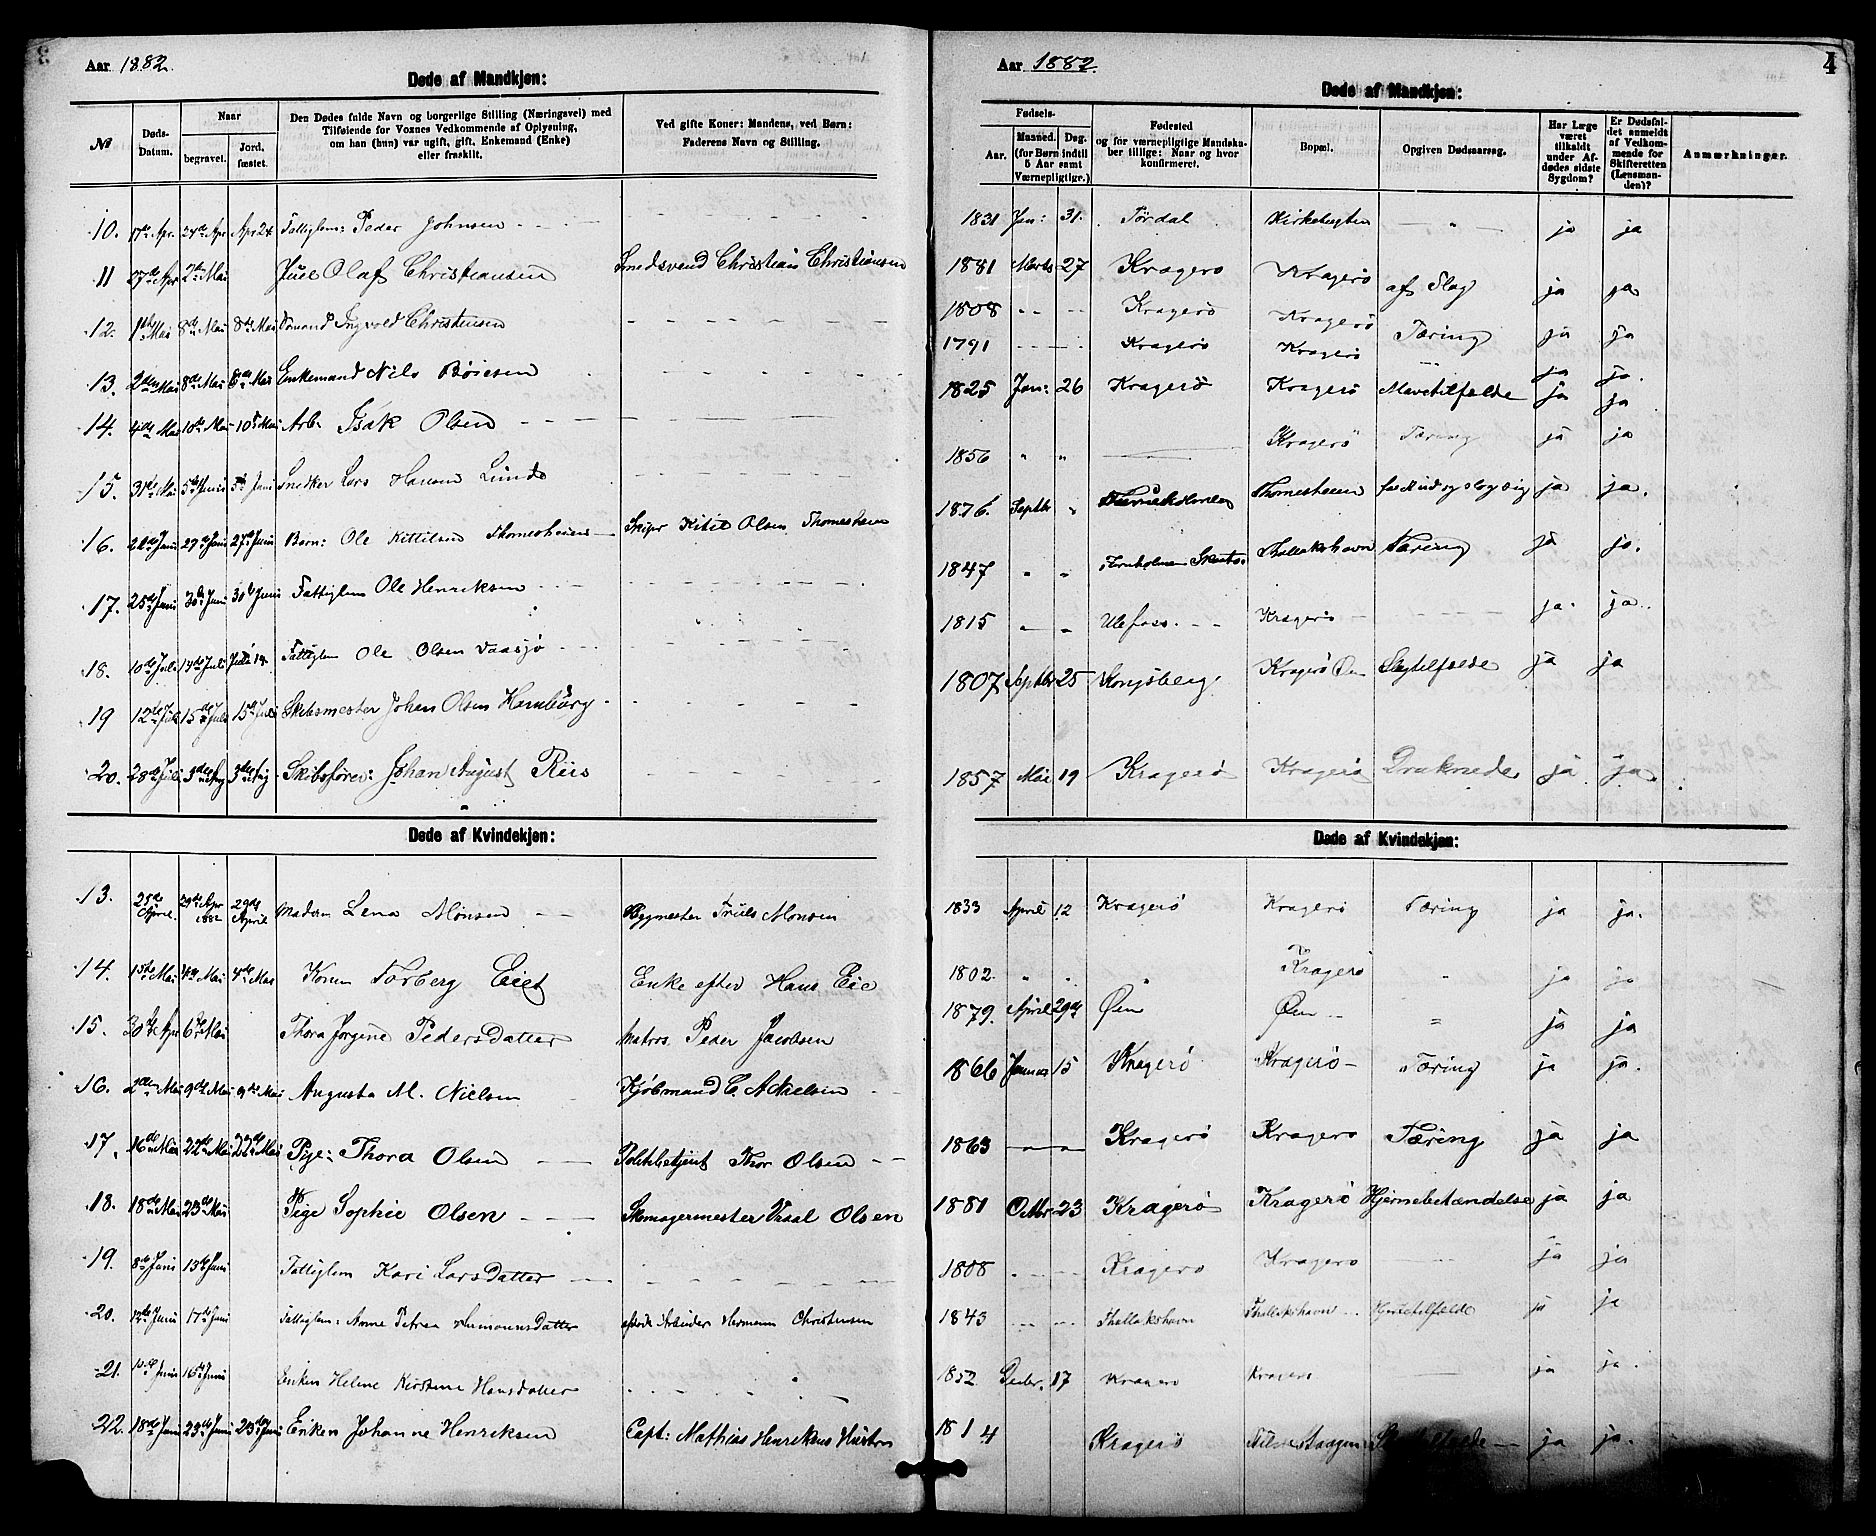 Aar 1882.
Døde af Mandkjøn:
№
Døds-Datum.
Naar
begravet.
Jord. fæstet.
Den Dødes fulde Navn og borgerlige Stilling (Næringsvei) med
Tilføiende for Voxnes Vedkommende af Oplysning,
om han (hun) var ugift, gift, Enkemand (Enke)
eller fraskilt.
Ved gifte Koner: Mandens, ved Børn:
Faderens Navn og Stilling.
10. 17de Apr. 24de Apr Apr 24 Fattiglem: Peder Johnsen
11 27de Apr 2den Mai Juel Olaf Christiansen Smedsvend Christian Christiansen
12. 1ste Mai 8de Mai 8de Mai Sømand Ingvold Christensen
13. 2den Mai 8de Mai 8de Mai Enkemand Nils Böiesen
14. 4de Mai 10de Mai 10de Mai Arb. Isak Olsen
15. 31te Mai 5te Juni 5te Juni Snedker Lars Hansen Lunde
16. 22de Juni 29de Juni 27de Juni Barn: Ole Kittilsen Thomesheien Skipr Kitil Olsen Thomesheien
17. 25de Juni 30de Juni 30te Juni Fattiglem Ole Henriksen
18. 10de Juli 14de Juli Juli 14 Fattiglem Ole Olsen Vaasjø
19 12te Juli 15de Juli 15de Juli Skibsmester Johan Olsen Hamburg
20. 28de Juli 3die Aug 3die Aug Skibsfører: Johan August Riis
Døde af Kvindekjøn:
13. 25de April. 29de Apr 1882 29de April Madam Lena Monsen Bygmester Truls Monsen
14. 15de Mai 4de Mai 4de Mai Karen Torberg Eiet Enke efter Hans Eie
15. 30te Apr 6te Mai Thora Jorgine PedersDatter Matros. Peder Jacobsen
16. 2den Mai 9de Mai 9de Mai Augusta M. Nielsen Kjöbmand C. A Nielsen
17. 16de Mai 22de Mai 22de Mai Pige: Thora Olsen Politibetjent Thor Olsen
18. 18de Mai 23de Mai Pige Sophie Olsen Skomagermester Vraal Olsen
19. 8de Juni 13de Juni Fattiglem Kari LarsDatter
20. 12te Juni 17de Juni Fattiglem: Anne Petrea HermannsDatter afdøde Arbeider Hermann Christensen
21. 10de Juni 16de Juni Enken Helene Kirstine Hansdatter
22. 18de Juni 23de Juni 23de Juni Enken Johanne Henriksen Capt: Mathias Henriksen
Aar 1882.
4
Døde af Mandkjøn:
Fødsels-
Aar.
Maaned. Dag.
(for Børn indtil
5 Aar samt
Værnepligtige.)
Fødested
og for værnepligtige Mandska-
ber tillige: Naar og hvor
konfirmeret.
Bopæl.
Opgiven Dødsaarsag.
Har Læge
været
tilkaldt
under Af-
dødes sidste
Sygdom?
Er Dødsfal-
det anmeldt
af Vedkom-
mende for
Skifteretten
(Lensman-
den)?
Anmærkninger.
1831 Jan: 31. Tördal Kirkebugten " ja ja
1881 Marts 27 Kragerö Kragerö af Slag ja ja
1808 Kragerö Kragerö Tæring ja ja
1791 Kragerö Kragerö ja ja.
1825 Jan: 26 Kragerö Kragerö Mavetilfælde ja ja
1856 " " Kragerö Tæring ja ja
1876. Septbr " Thomesheien faldt ud og slog sig ja ja.
1847 " " Furuholmen Skaatø Thallakshavn Tæring ja ja.
1815 Ulefoss. Kragerö ja. ja.
1807 Septbr 25 Kongsberg Kragerö Øen Slagtilfælde ja ja
1857 Mai 19 Kragerö Kragerö Druknede ja ja.
Døde af Kvindekjøn:
1833 April 12 Kragerö Kragerö Tæring ja ja.
1802. " " " Kragerö " ja ja
1879. April 29de Øen Øen " ja ja
1866 Januar 15 Kragerö Kragerö Tæring ja ja.
1863 Kragerö Kragerö Tæring ja ja
1881 Octbr 23 Kragerö Kragerö Hjernebetændelse ja ja
1808 Kragerö Kragerö ja ja
1843 Thallakshavn Thallakshavn Hjertetilfælde ja ja
1852. Decbr. 17 Kragerö Kragerö ja ja.
1814 Kragerö ja ja.